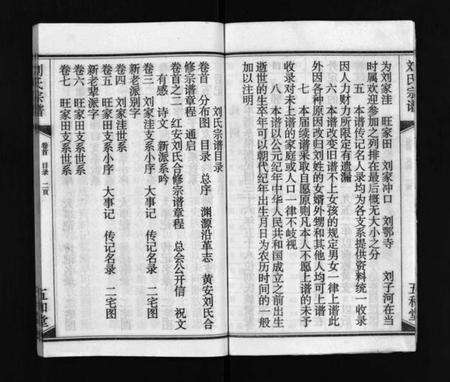 刘氏宗谱
五和堂
为刘家洼 旺家田 刘家冲口 刘鄂寺 刘子河在当
时属欢迎参加之列排在最后概无大小之分
五 本谱传记名人录均为各支系提供资料统一收录
因人力财力所限定有遗漏
六 本谱改变旧谱不上女孩的规定男女一律上谱此
外因各种原因改归刘姓的女婿外甥和其他人均可上谱
七 本届续谱采取自愿原则凡本人不愿上谱的未予
收录对未上谱的家庭或人口一律不歧视
八 本谱以公元纪年中华人民共和国成立之前出生
逝世的生卒年可以朝代纪年出生月日为农历时间的一般
加以注明
刘氏宗谱目录
卷首 分布图 目录 总序 渊源沿革志 黄安刘氏合
修宗谱章程 通启
卷首之二 红安刘氏合修宗谱章程 总会公开信 祝文
有感 诗文 新派系吟
卷三 刘家洼支系小序 大事记 传记名录 二宅图
新老派别字
卷四 刘家洼世系
卷五 旺家田支系小序 大事记 传记名录 二宅图
新老辈派字
卷六 旺家田支世系
卷七 旺家田支世系
刘氏宗谱
卷首 目录 二页
五和堂